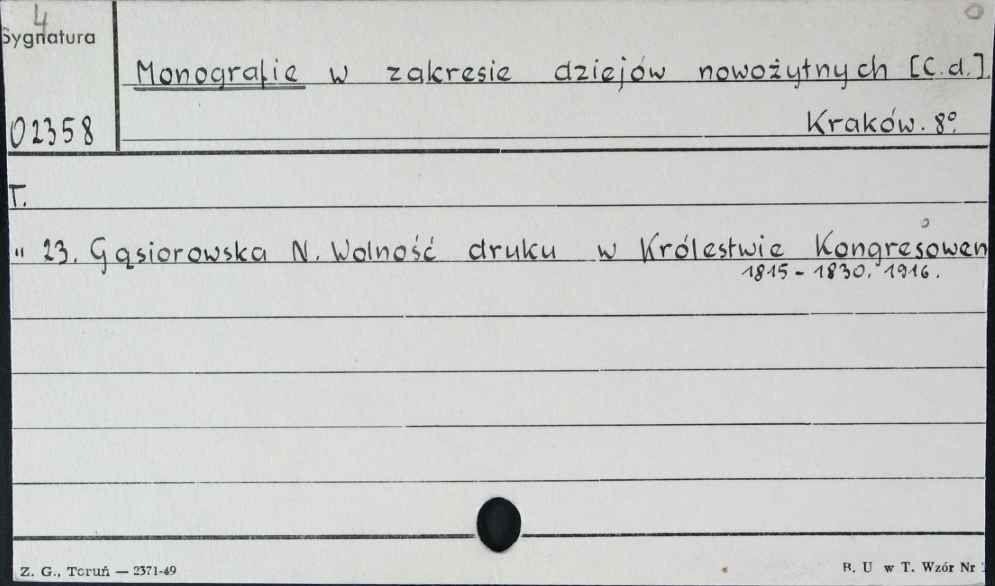 4
Sygnatura
Monografie w zakresie dziejów nowożytnych [C.d.].
02358
Kraków. 8º.
T.
" 23. Gąsiorowska N. Wolność druku w Królestwie Kongresowen
1815 - 1830. 1916.
Z. G., Toruń — 2371-49
B. U w T. Wzór Nr